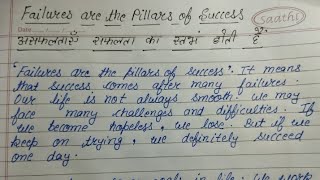 Failures are the Pillars of Success
Saathi
Date
असफलताएँ सफलता का स्तंभ होती हैं
"Failures are the pillars of success". It means
that success comes after many failures.
Our life is not always smooth. We may
face many challenges and difficulties. If
we become hopeless, we lose. But if we
keep on trying, we definitely succeed
one day.
in life. We work